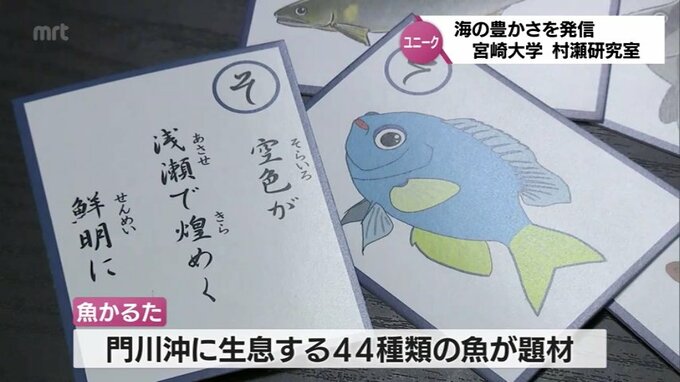 mrt
ユニーク
海の豊かさを発信
宮崎大学 村瀬研究室
そ
空色が
そらいろ
浅瀬で煌めく
あさせ
きら
鮮明に
せんめい
そ
魚かるた
門川沖に生息する44種類の魚が題材